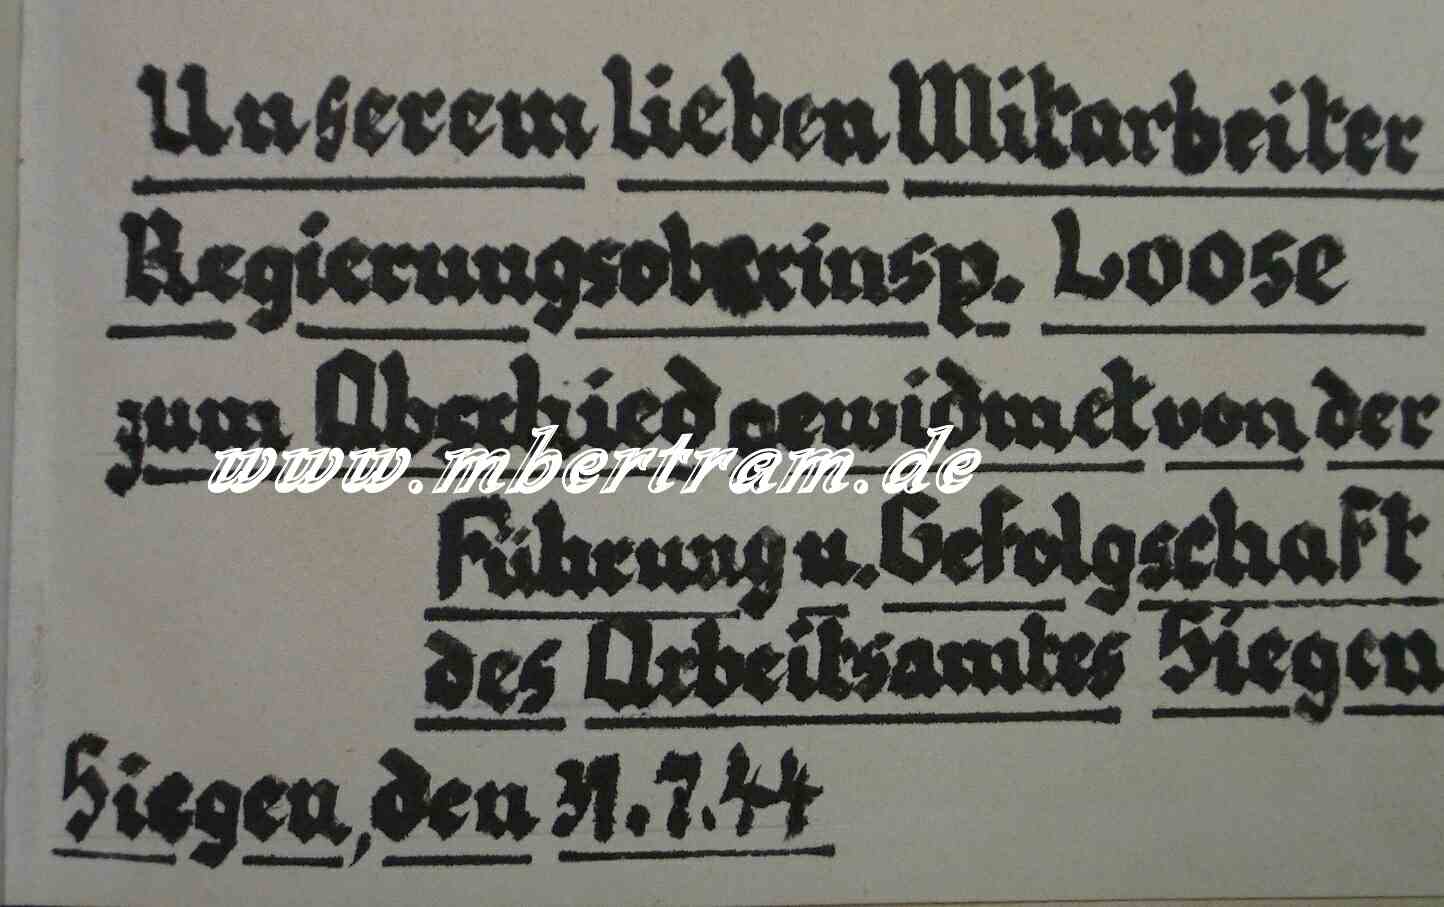 Unserem lieben Mitarbeiter
Regierungsoberinsp. Loose
zum Abschied gewidmet von der
www.mbertram.de
Führung u. Gefolgschaft
des Arbeitsamtes Siegen
Siegen, den 31.7.44